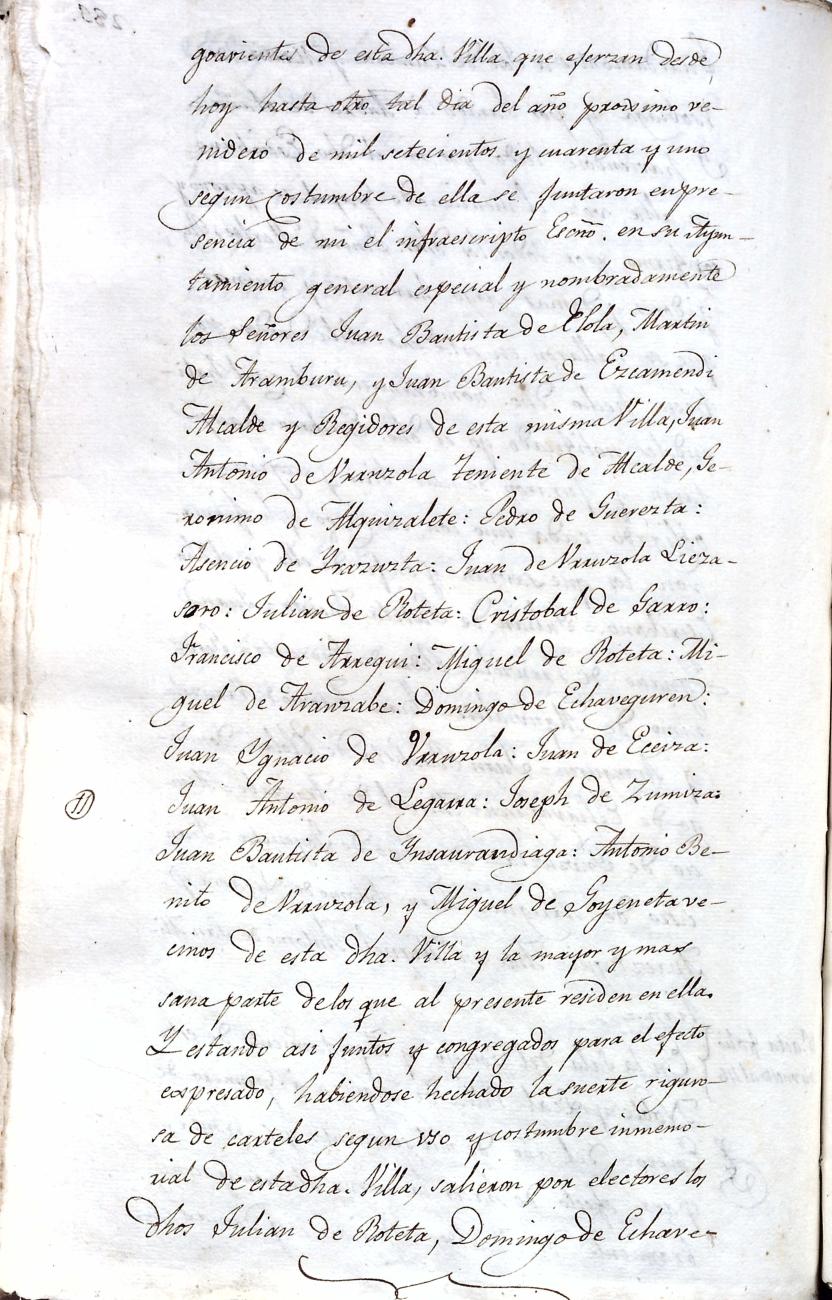 goavientes de esta dha. Villa que eferzan desde
hoy hasta otro tal dia del año proximo ve-
nidero de mil setecientos y cuarenta y uno
segun costumbre de ella se juntaron en pre-
sencia de mi el infraescripto Escño. en su Ayun-
tamiento general especial y nombradamente
los Señores Juan Bautista de Elola, Martin
de Aramburu, y Juan Bautista de Ezcamendi
Alcalde y Regidores de esta misma Villa, Juan
Antonio de Vrruzola Teniente de Alcalde, Ge-
ronimo de Alquizalete: Pedro de Guerezta:
Asencio de Yrazuzta: Juan de Vrruzola Lieza-
soro: Julian de Roteta: Cristobal de Garro:
Francisco de Arregui: Miguel de Roteta: Mi-
guel de Aranzabe: Domingo de Echaveguren:
Juan Ygnacio de Vrruzola: Juan de Eceiza:
11 Juan Antonio de Legarra: Joseph de Zumiza:
Juan Bautista de Ynsaurandiaga: Antonio Be-
nito de Vrruzola, y Miguel de Goyeneta ve-
cinos de esta dha. Villa y la mayor y mas
sana parte de los que al presente residen en ella.
Y estando asi juntos y congregados para el efecto
expresado, habiendose hechado la suerte riguro-
sa de carteles segun vso y costumbre inmemo-
rial de esta dha. Villa, salieron por electores los
dhos Julian de Roteta, Domingo de Echave-